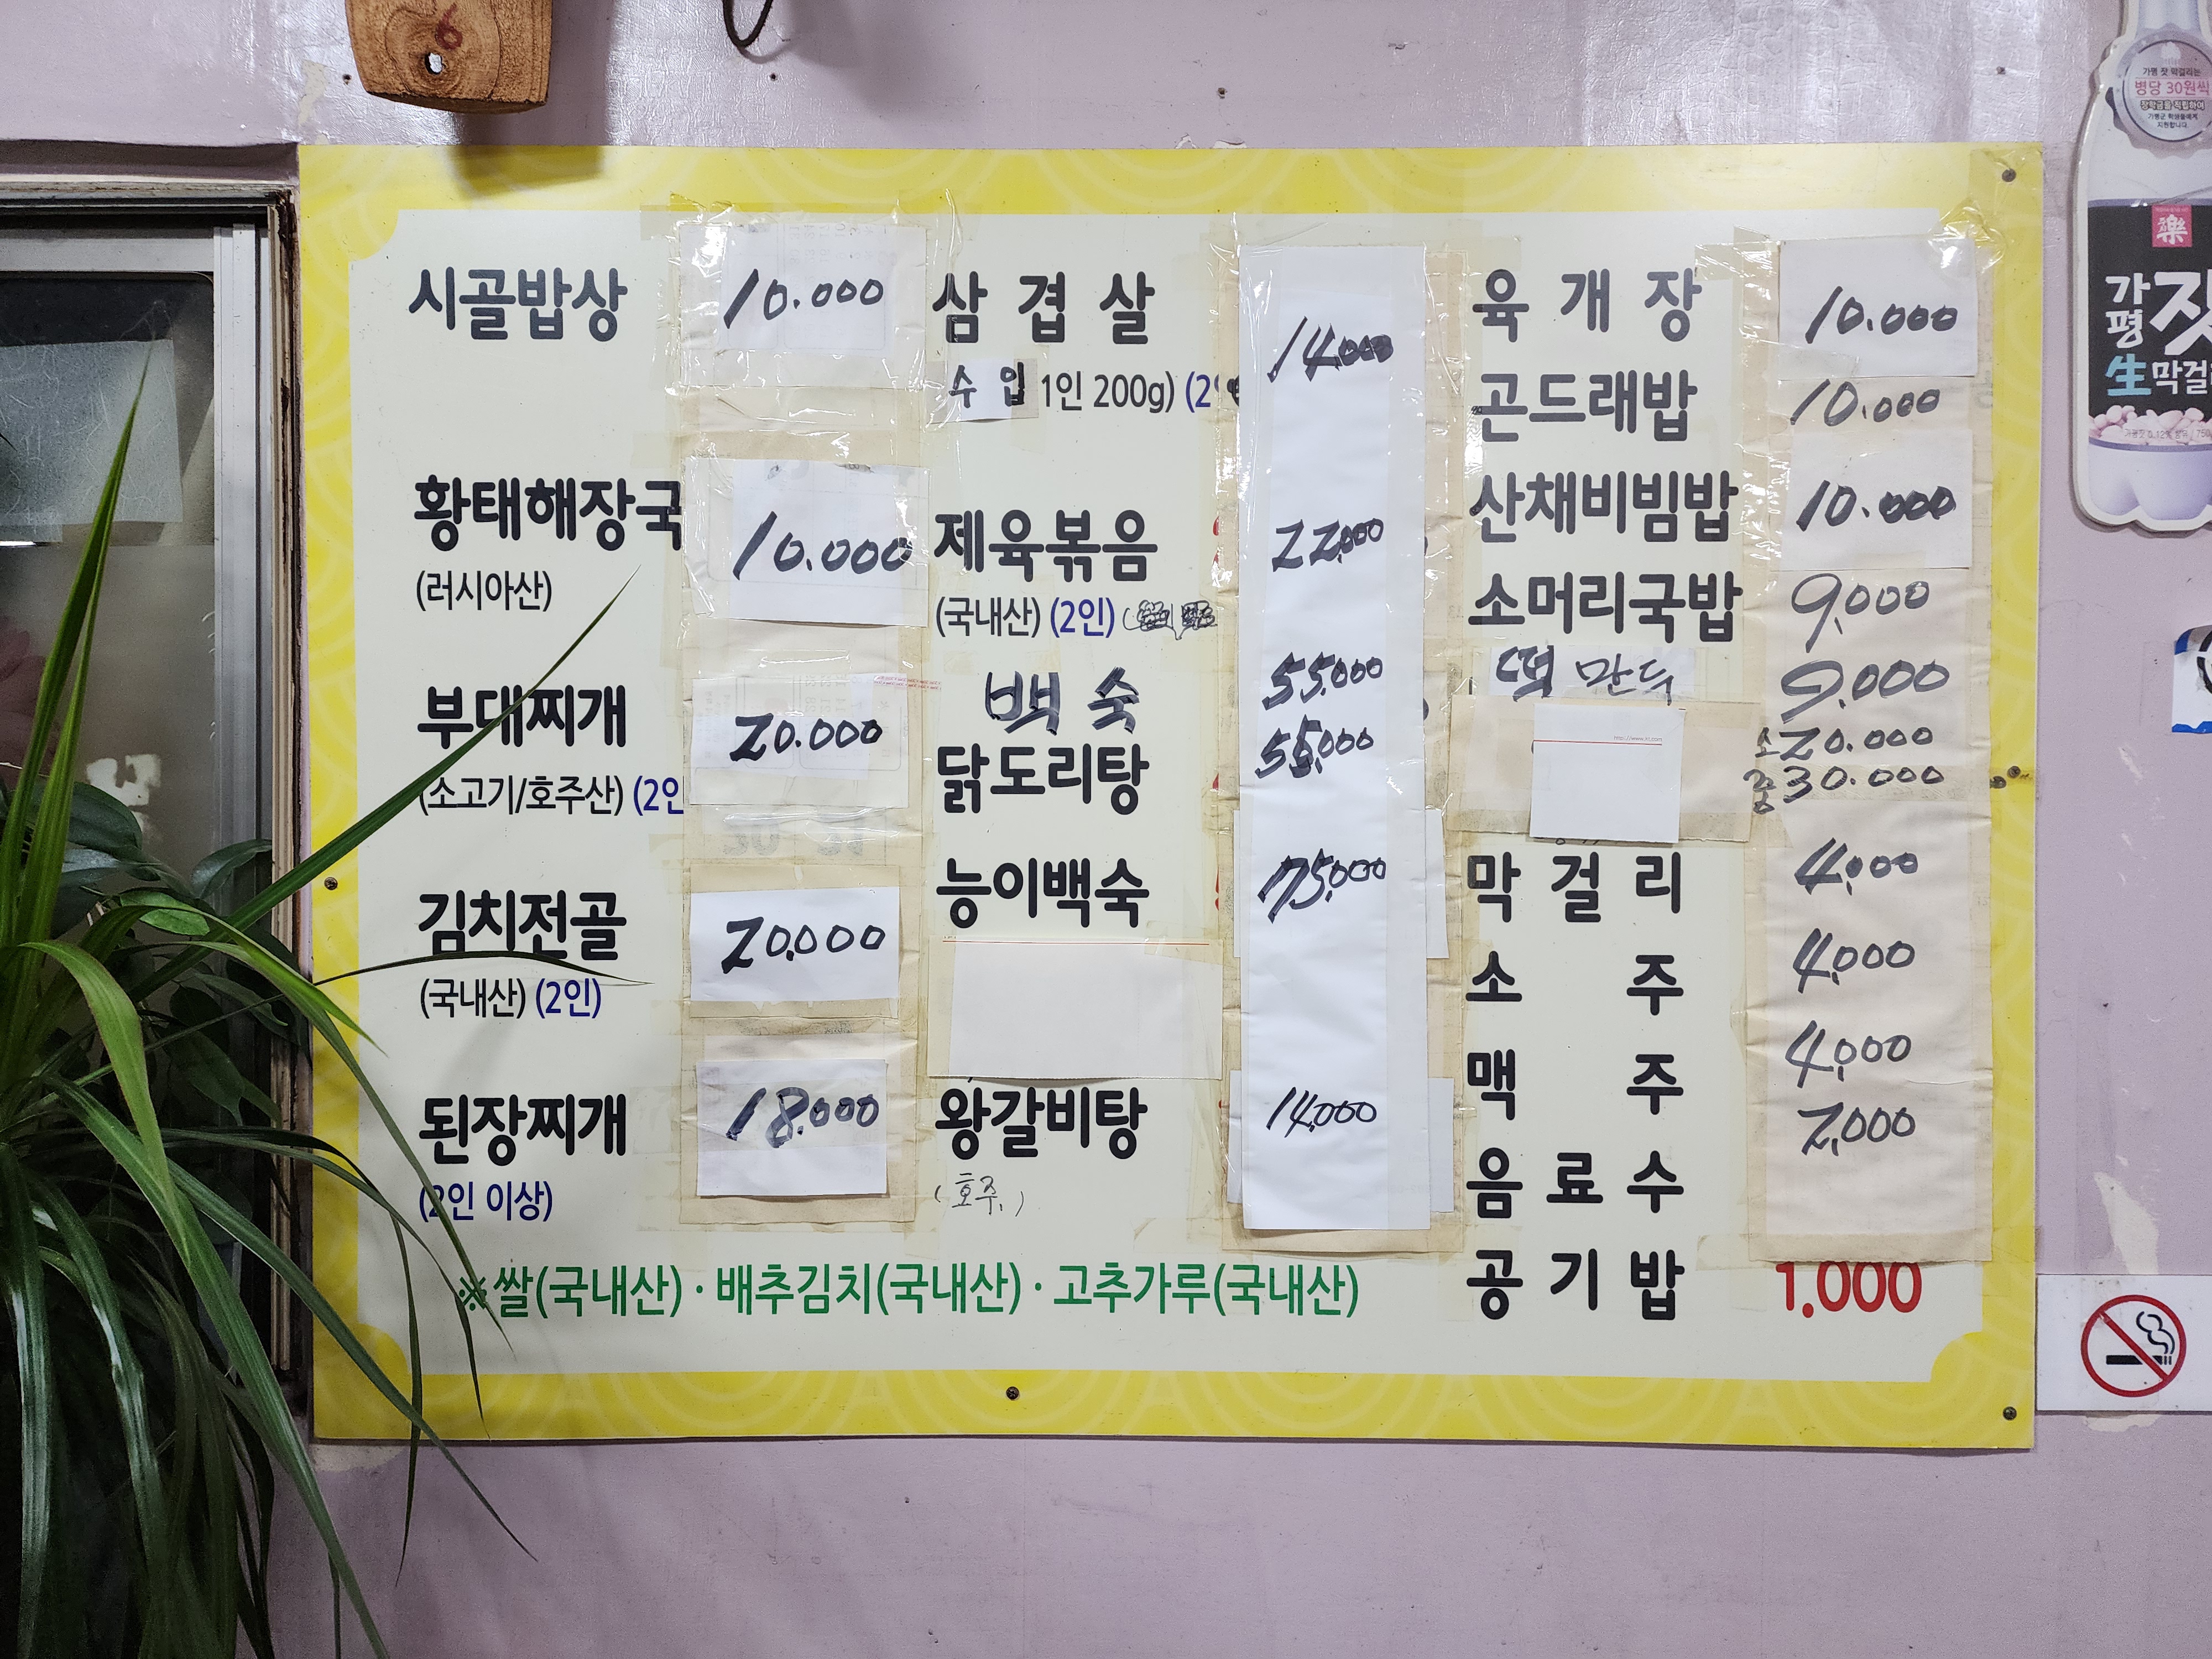 시골밥상 10.000
황태해장국 10.000
(러시아산)
부대찌개 20.000
(소고기/호주산) (2인
김치전골 20,000
(국내산) (2인)
된장찌개 18.000
(2인 이상)
삼겹살 14,000
수입 1인 200g) (2
제육볶음 22,000
(국내산) (2인)
백숙 55,000
닭도리탕 55,000
능이백숙 75,000
왕갈비탕 14,000
(호주.)
육개장 10.000
곤드래밥 10.000
산채비빔밥 10.000
소머리국밥 9,000
떡만두 9.000
소 20.000
중 30.000
막걸리 4,000
소주 4,000
맥주 4,000
음료수 2,000
공기밥 1.000
※쌀(국내산)·배추김치(국내산)·고추가루(국내산)
6
가평 잣 막걸리는
병당 30원씩
장학금을 적립하여
가평군 학생들에게
지원합니다.
樂
가평
잣
生막걸